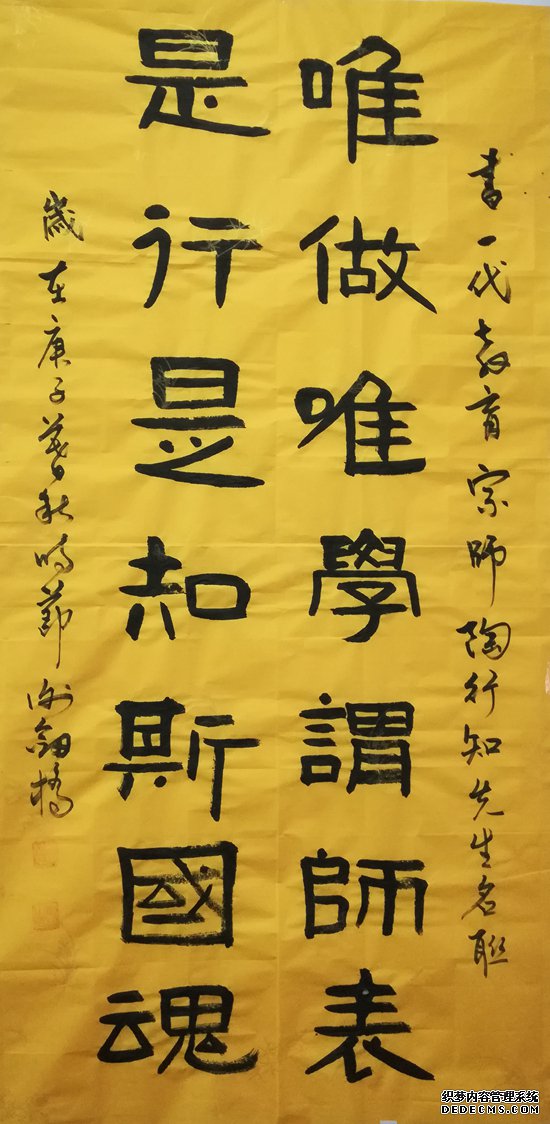 書一代教育宗师陶行知先生名联
唯做唯學謂師表
是行是知斯國魂
歲在庚子暮秋時節谢劍橋
织梦内容管理系统
DEDECMS.COM